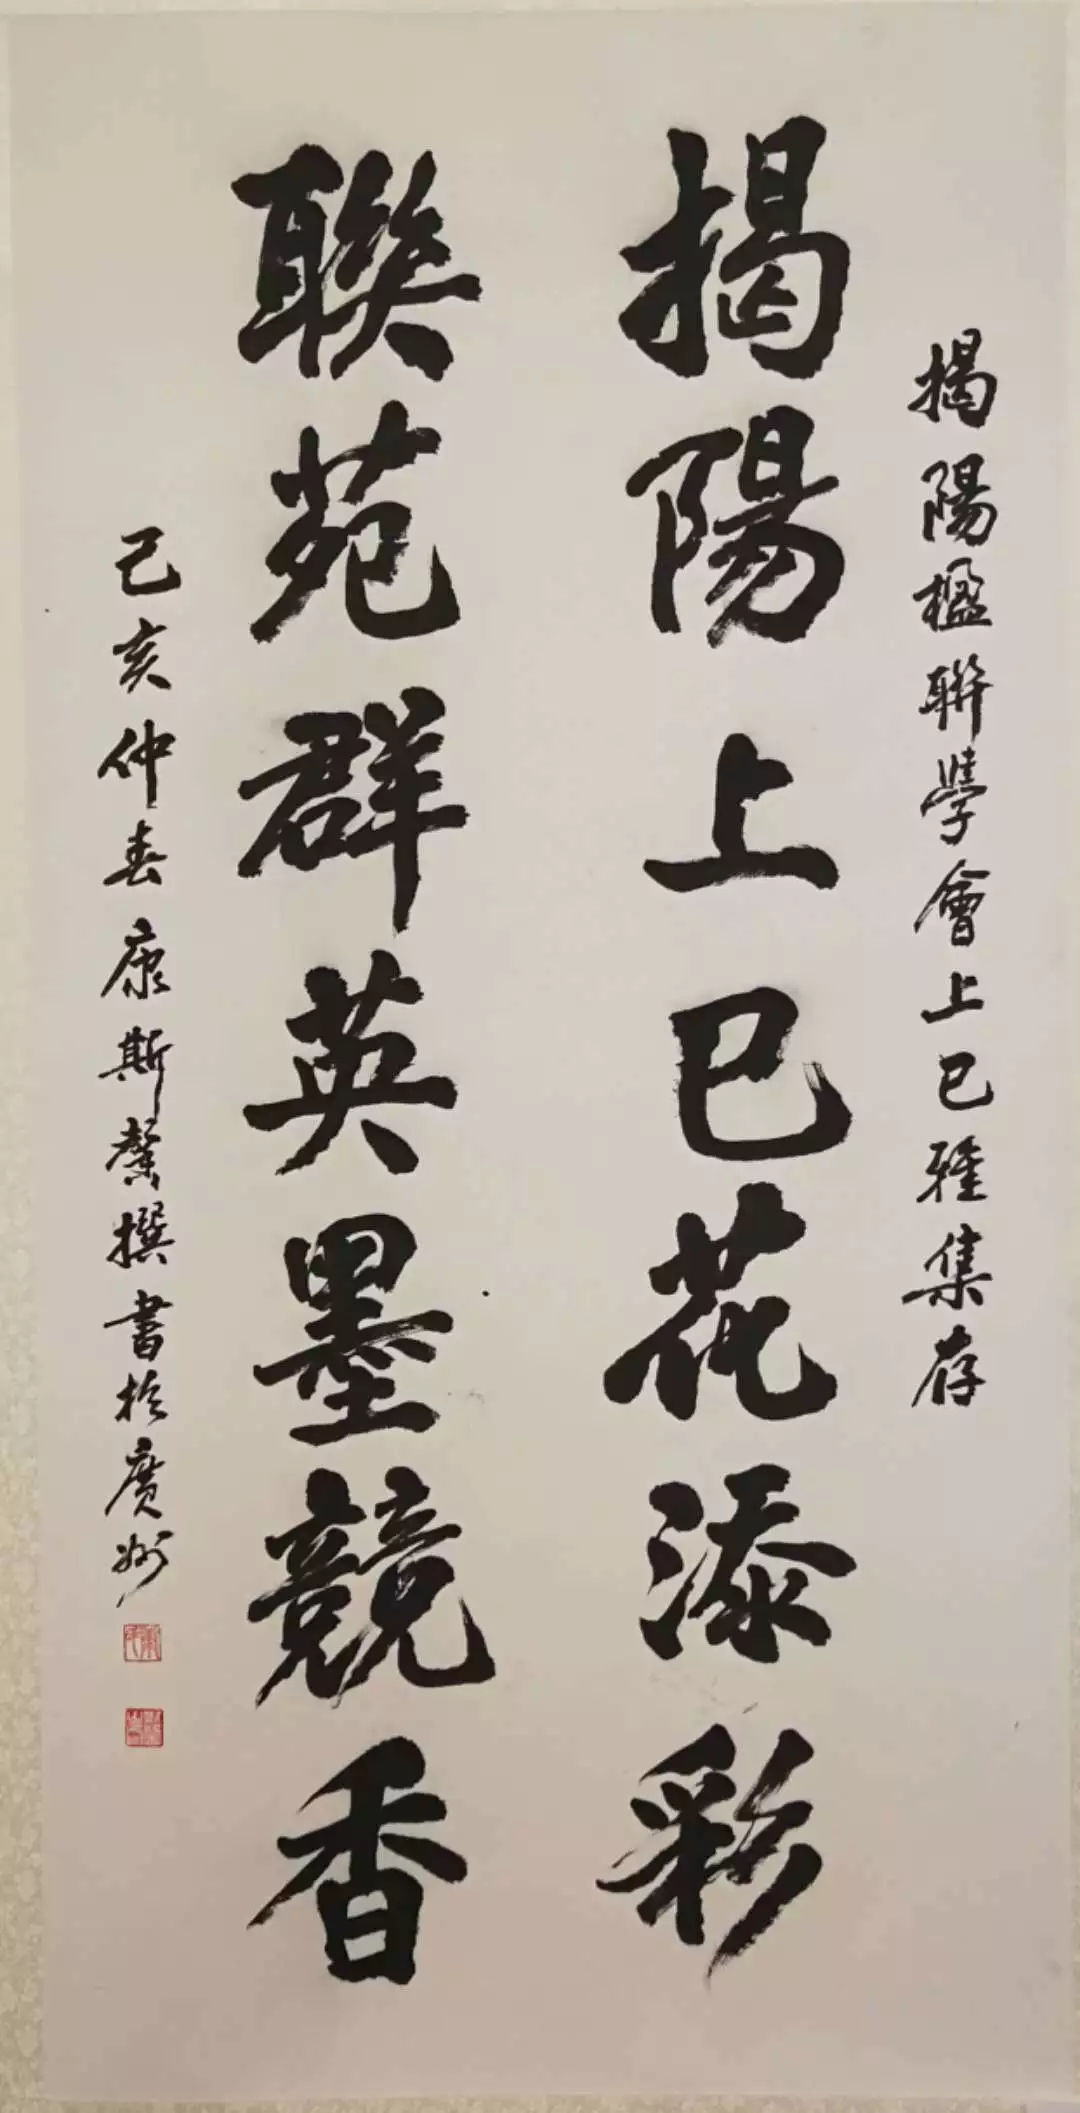 揭陽楹聯學會上巳雅集存
揭陽上巳花添彩
聯苑群英墨競香
己亥仲春康斯馨撰書於廣州